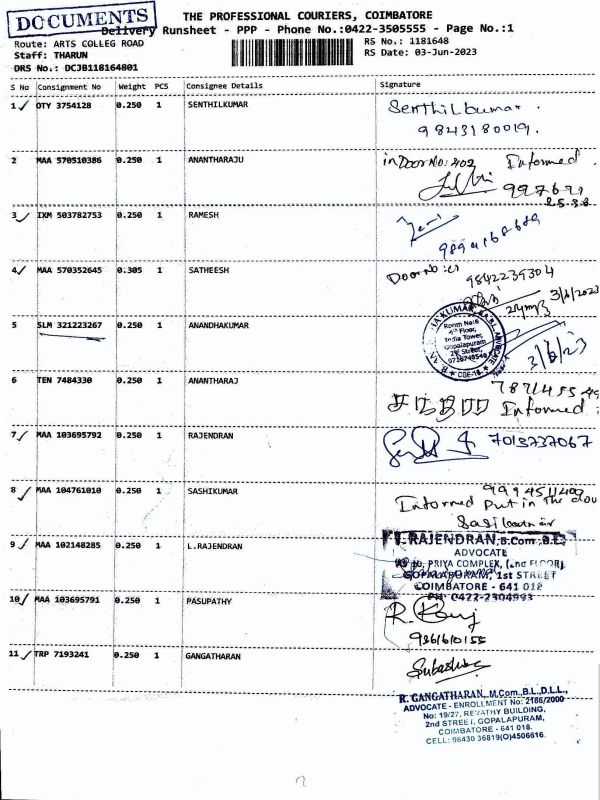 DOCUMENTS
THE PROFESSIONAL COURIERS, COIMBATORE
Delivery Runsheet - PPP - Phone No.:0422-3505555 - Page No.:1
Route: ARTS COLLEG ROAD
RS No.: 1181648
Staff: THARUN
RS Date: 03-Jun-2023
DRS No.: DCJB118164801
S No Consignment No Weight PCS Consignee Details Signature
1 OTY 3754128 0.250 1 SENTHILKUMAR Senthilkumar.
9843180019.
2 MAA 570510386 0.250 1 ANANTHARAJU in Door No: 402 Informed
3 IXM 503782753 0.250 1 RAMESH
4 MAA 570352645 0.305 1 SATHEESH Door No:
9842239304
5 SLM 321223267 0.250 1 ANANDHAKUMAR
Room No:6
4th Floor,
India Tower,
Gopalapuram
2nd Street,
CBE-18
3/6/23
6 TEN 7484330 0.250 1 ANANTHARAJ
Informed
7 MAA 103695792 0.250 1 RAJENDRAN 7013737067
8 MAA 104761010 0.250 1 SASHIKUMAR
Informed Put in The
9 MAA 102148285 0.250 1 L.RAJENDRAN
RAJENDRAN, B.Com.,B.L.
ADVOCATE
PRIYA COMPLEX, (2nd FLOOR)
GOPALAPURAM, 1st STREET
COIMBATORE - 641 018
PH: 0422-2304993
10 MAA 103695791 0.250 1 PASUPATHY
9861610155
11 TRP 7193241 0.250 1 GANGATHARAN
R. GANGATHARAN, M.Com.,B.L.,D.L.L.,
ADVOCATE - ENROLLMENT No: 2186/2000
No: 19/27, REVATHY BUILDING,
2nd STREET, GOPALAPURAM,
COIMBATORE - 641 018.
CELL: 98430 36819(O)4506616